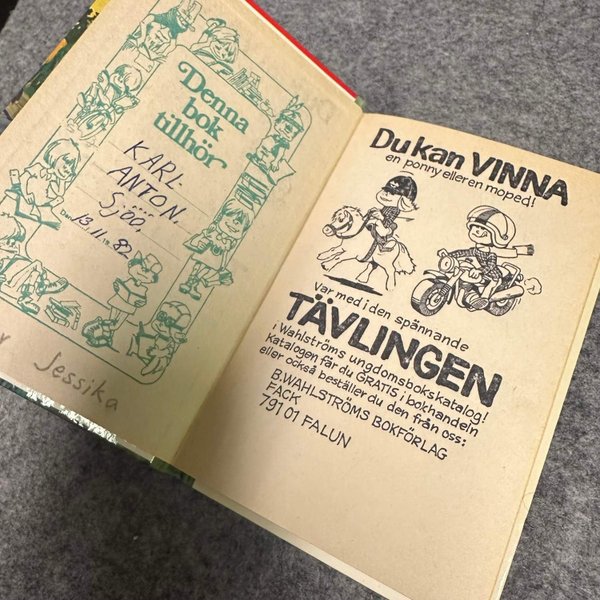 Denna
bok
tillhör
KARL-
ANTON.
Sjöö.
Den 13.11.1982.
Jessika
Du kan VINNA
en ponny eller en moped!
Var med i den spännande
TÄVLINGEN
i Wahlströms ungdomsbokskatalog!
Katalogen får du GRATIS i bokhandeln
eller också beställer du den från oss:
B.WAHLSTRÖMS BOKFÖRLAG
FACK
791 01 FALUN